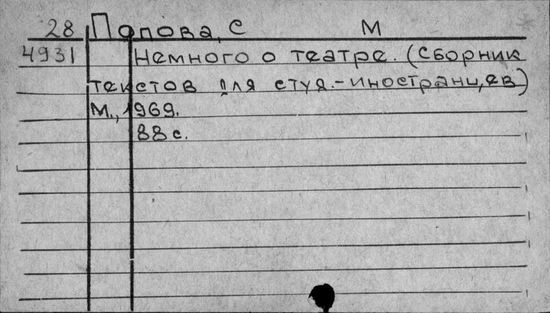 28 Попова, С М
4931 Немного о театре. (Сборник
текстов для студ.-иностранцев)
М., 1969.
88 с.